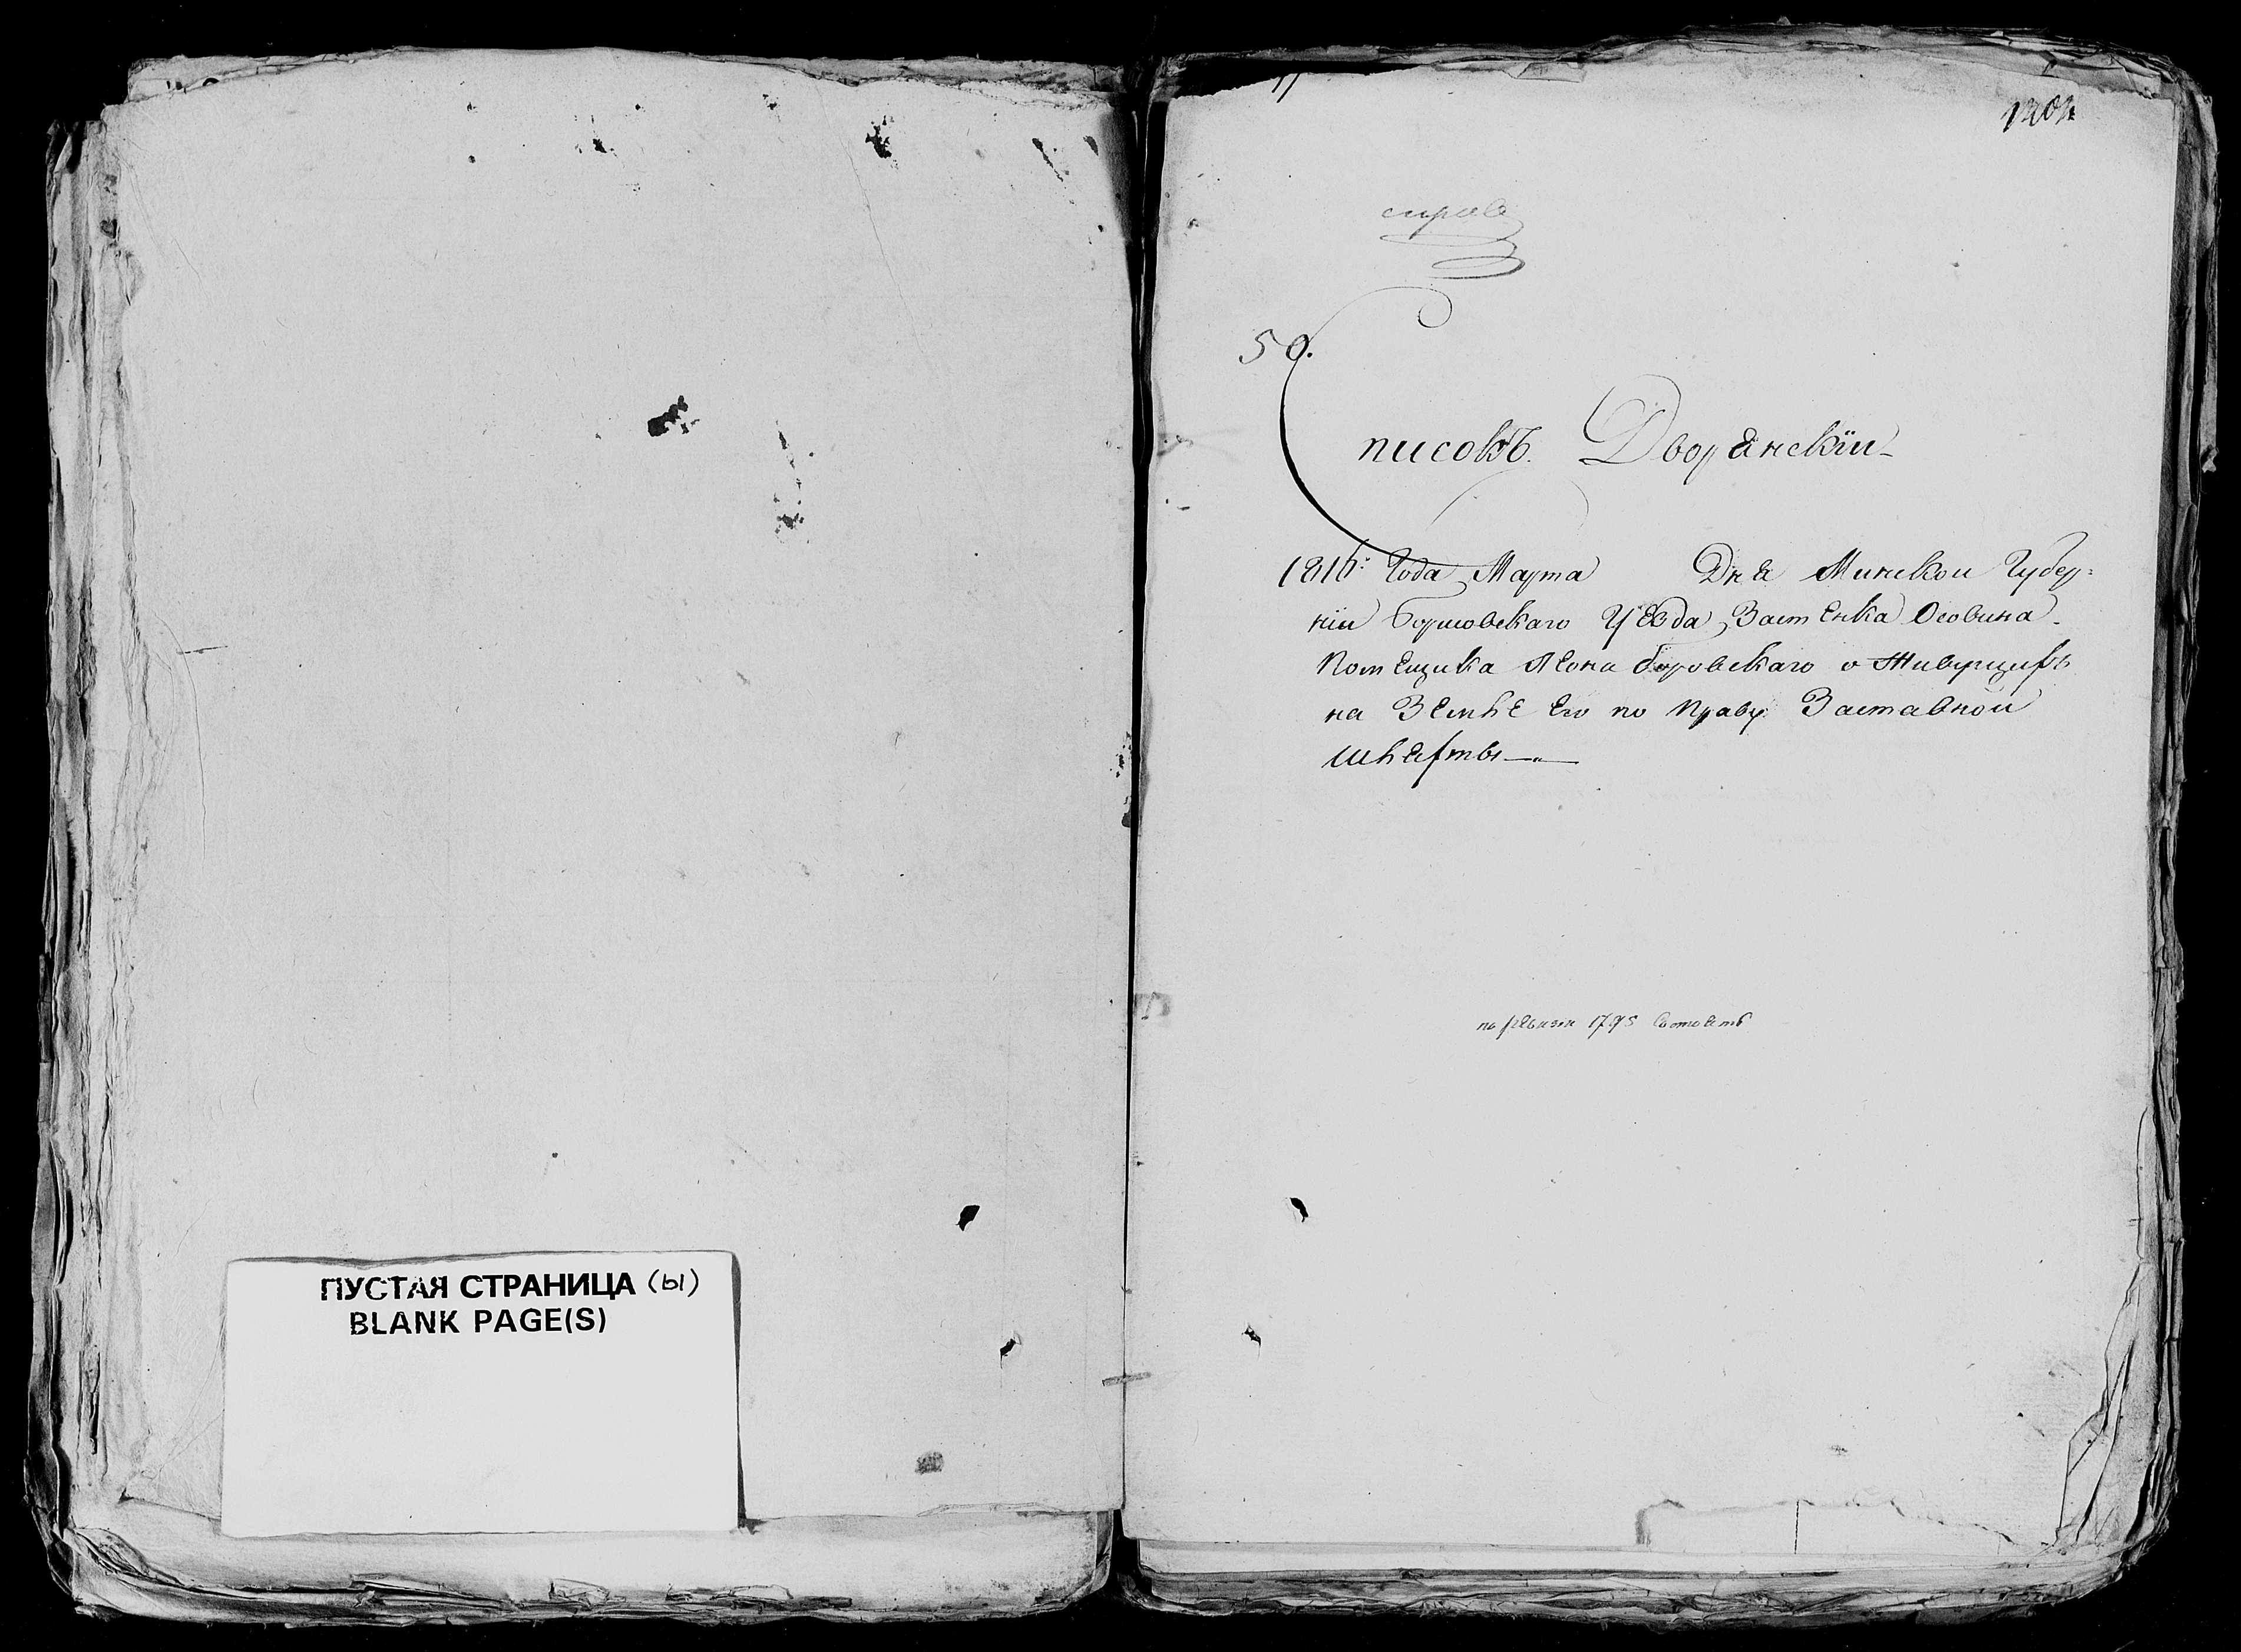 ПУСТАЯ СТРАНИЦА (ы)
BLANK PAGE(S)
50.
Списокъ. Дворянскіи
1816: Года Марта Дня Минскои Губер=
ніи Борисовскаго Уезда Застенка Особина
Помещика Леона Боровскаго о Живущихъ
на Земле Его по Праву Заставной
шляхты
по ревизіи 1795 Состоитъ